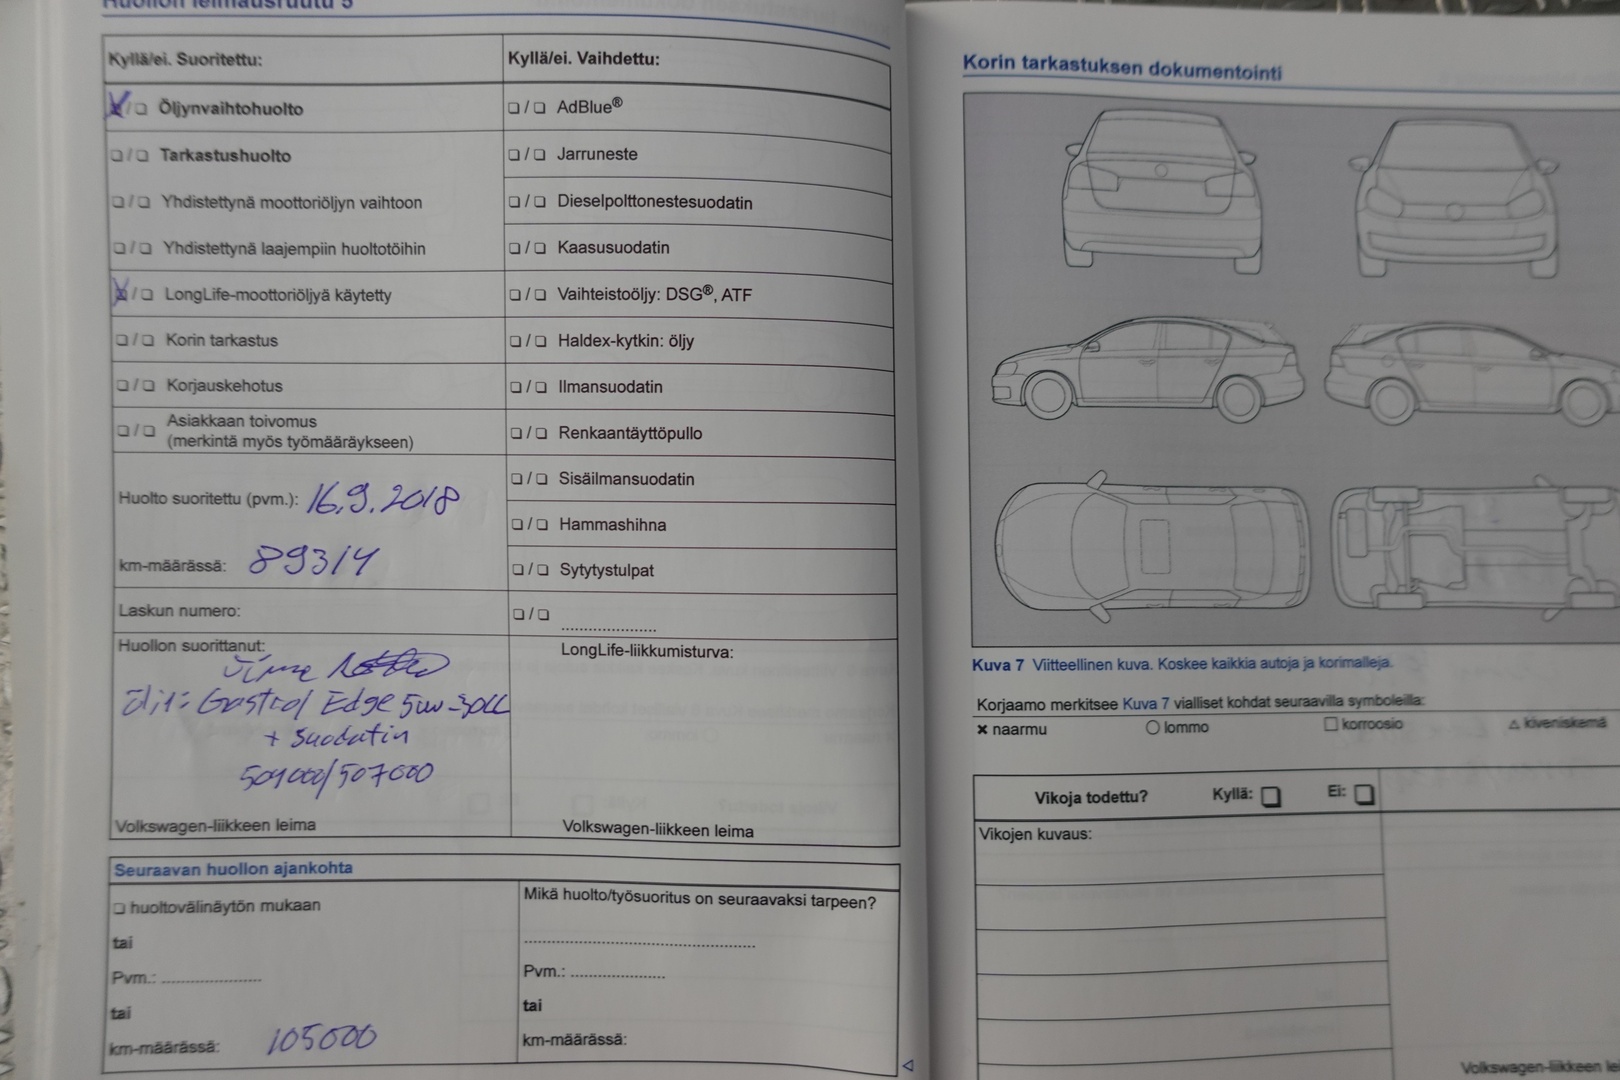 Huollon leimausruutu 5
Kyllä/ei. Suoritettu:
Öljynvaihtohuolto
Tarkastushuolto
Yhdistettynä moottoriöljyn vaihtoon
Yhdistettynä laajempiin huoltotöihin
LongLife-moottoriöljyä käytetty
Korin tarkastus
Korjauskehotus
Asiakkaan toivomus
(merkintä myös työmääräykseen)
Huolto suoritettu (pvm.): 16.9.2018
km-määrässä: 89314
Laskun numero:
Huollon suorittanut:
Castrol Edge 5w-30LL
+ suodatin
504000/507000
Volkswagen-liikkeen leima
Kyllä/ei. Vaihdettu:
AdBlue®
Jarruneste
Dieselpolttonestesuodatin
Kaasusuodatin
Vaihteistoöljy: DSG®, ATF
Haldex-kytkin: öljy
Ilmansuodatin
Renkaantäyttöpullo
Sisäilmansuodatin
Hammashihna
Sytytystulpat
LongLife-liikkumisturva:
Volkswagen-liikkeen leima
Seuraavan huollon ajankohta
huoltovälinäytön mukaan
tai
Pvm.: ....................
tai
km-määrässä: 105000
Mikä huolto/työsuoritus on seuraavaksi tarpeen?
Pvm.: ...................
tai
km-määrässä:
Korin tarkastuksen dokumentointi
Kuva 7 Viitteellinen kuva. Koskee kaikkia autoja ja korimalleja.
Korjaamo merkitsee Kuva 7 vialliset kohdat seuraavilla symboleilla:
× naarmu ○ lommo □ korroosio △ kiveniskemä
Vikoja todettu? Kyllä: Ei:
Vikojen kuvaus:
Volkswagen-liikkeen le